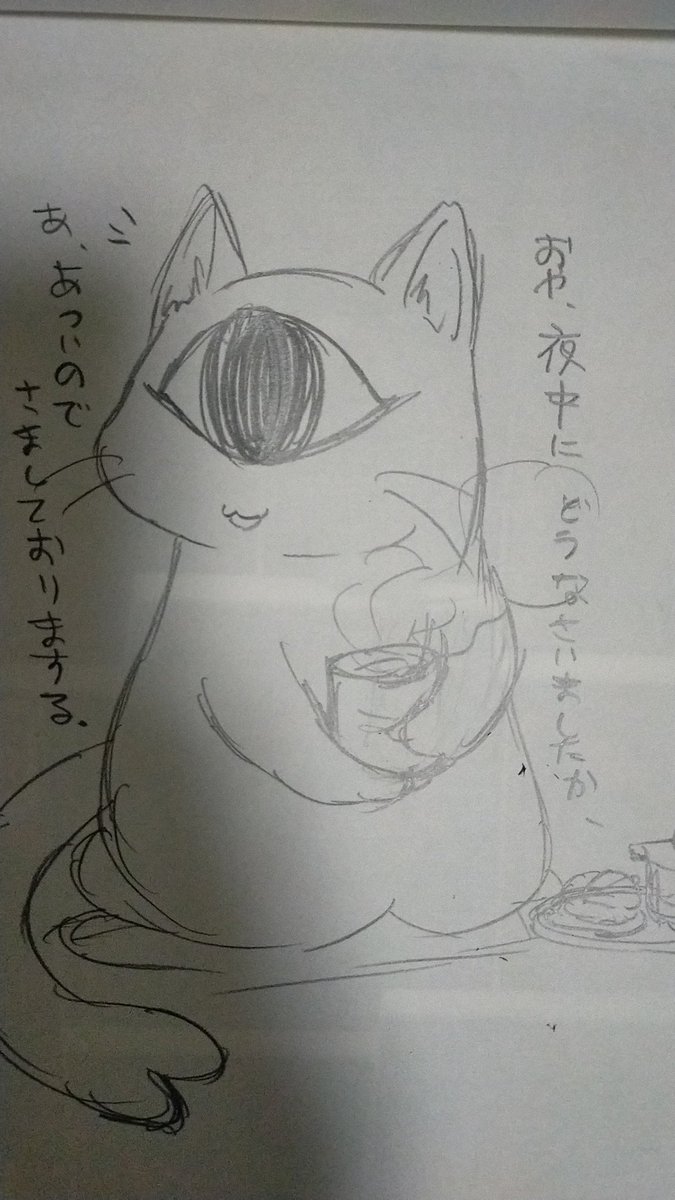 おや、夜中に どうなさいましたか、
あ、あついので
さましておりまする.